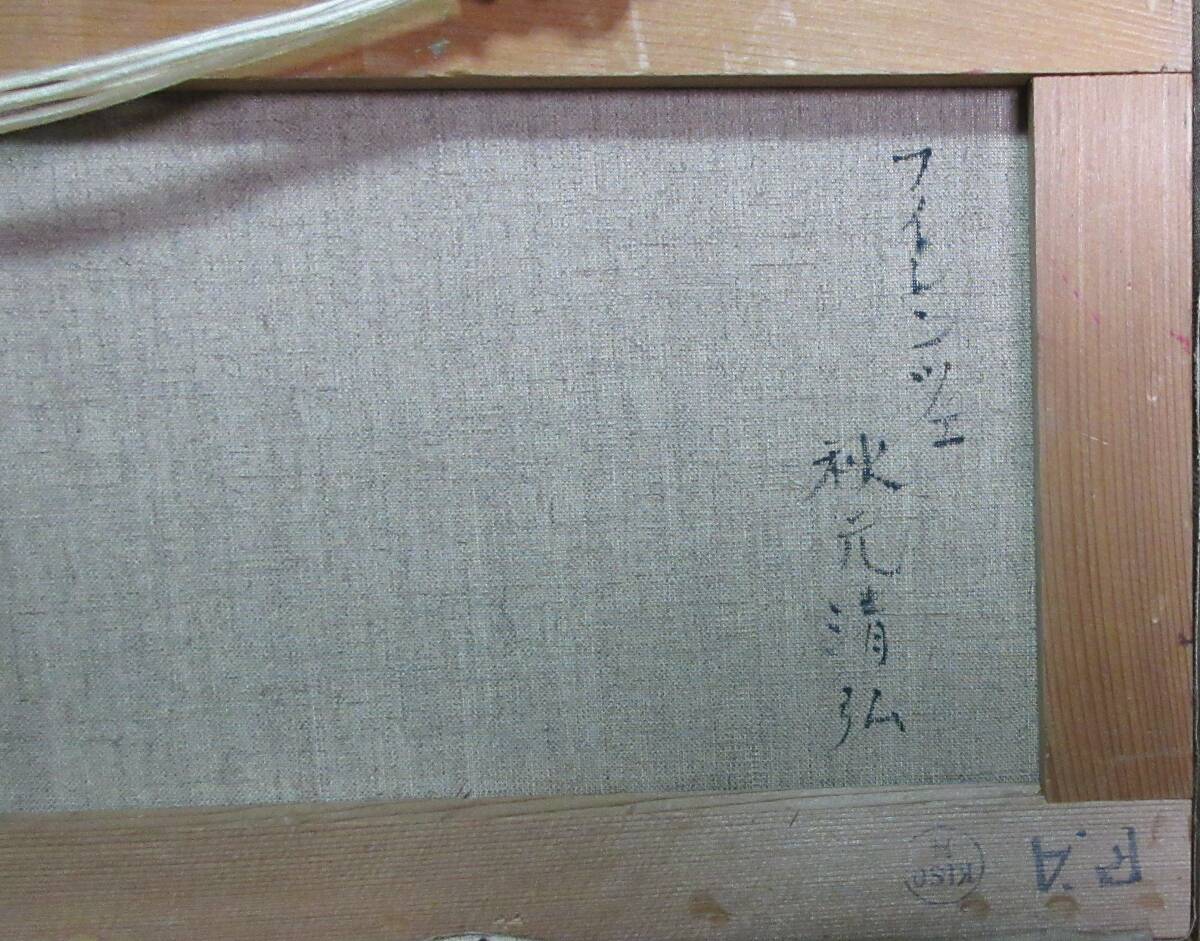 フィレンツェ
秋元清弘
KISO
F.4